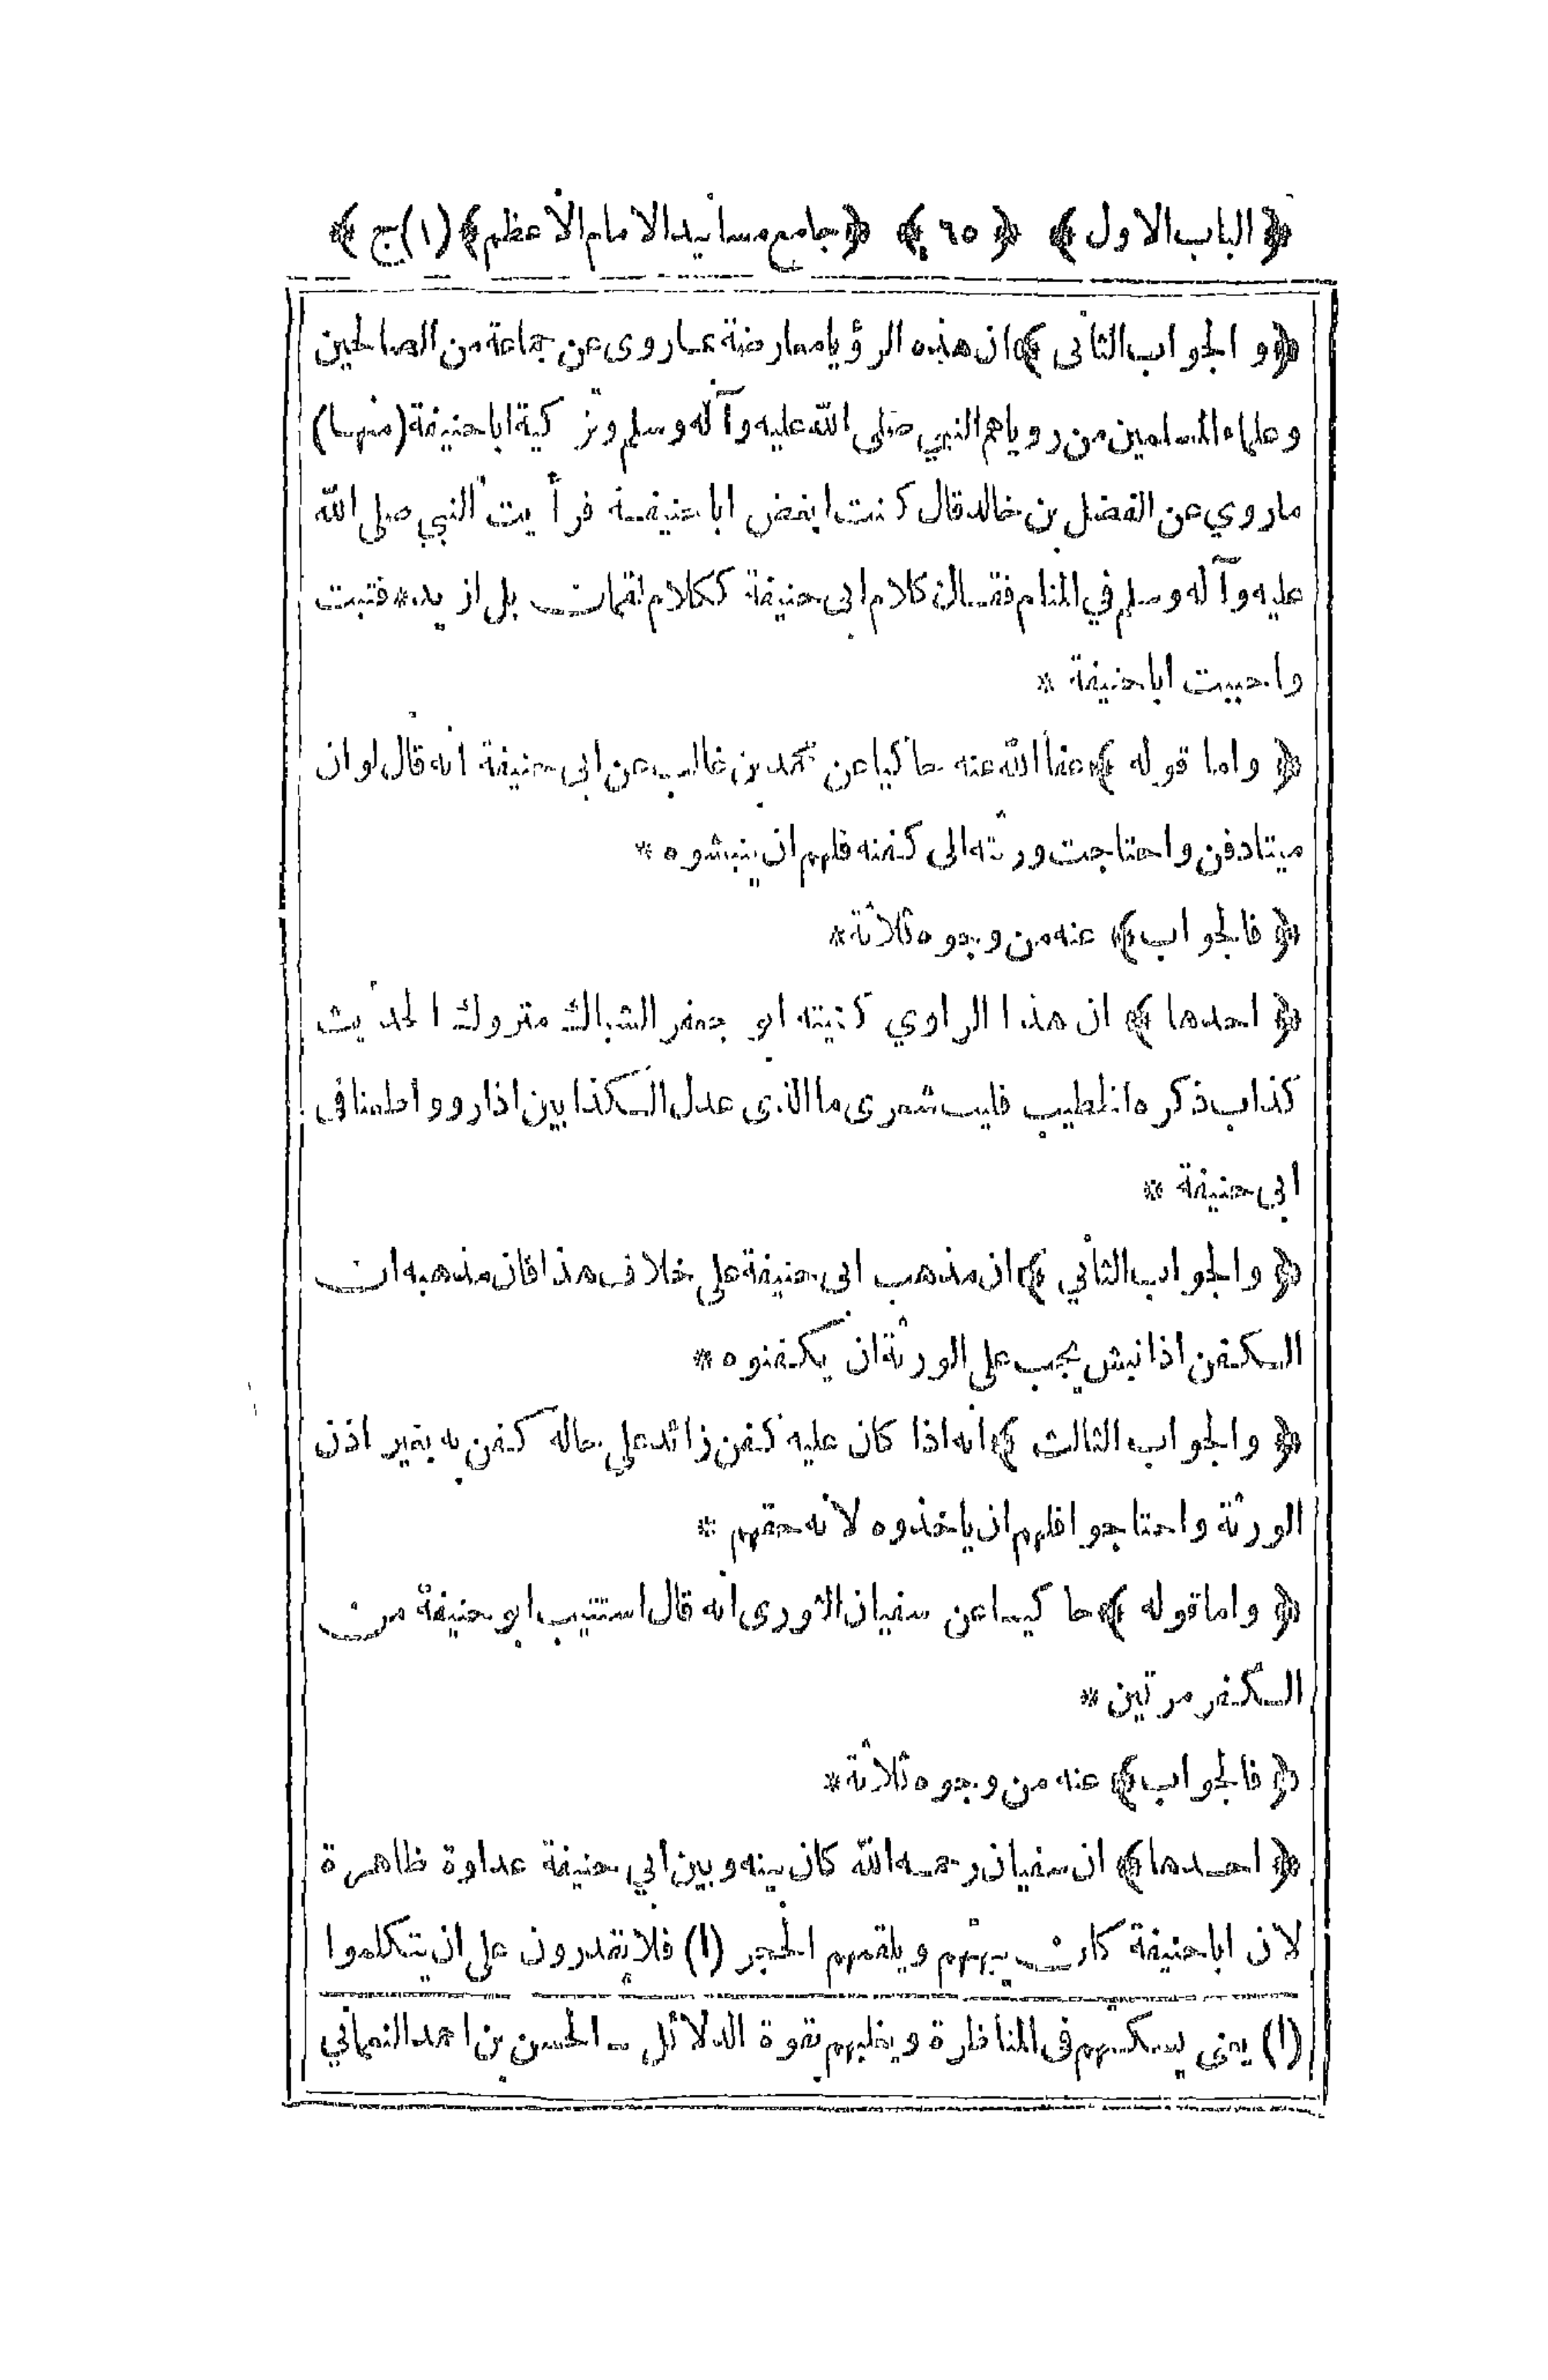 ﴿ الباب الاول ﴾ ﴿ ٦٥ ﴾ ﴿ جامع مسانيد الامام الأعظم ﴾ (١) ج ﴾
﴿ و الجواب الثانى ﴾ ان هذه الرؤيا معارضة بما روى عن جماعة من الصالحين
وعلماء المسلمين من روياهم النبي صلى الله عليه وآله وسلم وتزكية ابا حنيفة (منها)
ماروي عن الفضل بن خالد قال كنت ابغض ابا حنيفة فرأيت النبي صلى الله
عليه وآله وسلم في المنام فقال ان كلام ابى حنيفة ككلام لقمان بل ازيد * فتبت
واحببت ابا حنيفة *
﴿ واما قوله ﴾ عفا الله عنه حاكيا عن محمد بن غالب عن ابى حنيفة انه قال لو ان
ميتا دفن واحتاجت ورثته الى كفنه فلهم ان ينبشوه *
﴿ فالجواب ﴾ عنه من وجوه ثلاثة *
﴿ احدها ﴾ ان هذا الراوي كنيته ابو جعفر الشباك متروك الحديث
كذاب ذكره الخطيب فليت شعرى ما الذى عدل الكذابين اذا رووا طعنا فى
ابى حنيفة *
﴿ والجواب الثاني ﴾ ان مذهب ابى حنيفة على خلاف هذا فان مذهبه ان
الكفن اذا نبش يجب على الورثة ان يكفنوه *
﴿ والجواب الثالث ﴾ انه اذا كان عليه كفن زائد على حاله كفن به بغير اذن
الورثة واحتاجوا فلهم ان ياخذوه لانه حقهم *
﴿ واما قوله ﴾ حاكيا عن سفيان الثورى انه قال استتيب ابو حنيفة من
الكفر مرتين *
﴿ فالجواب ﴾ عنه من وجوه ثلاثة *
﴿ احدها ﴾ ان سفيان رحمه الله كان بينه وبين ابي حنيفة عداوة ظاهرة
لان ابا حنيفة كان يبهتهم ويلقمهم الحجر (١) فلا يقدرون على ان يتكلموا
(١) يعنى يسكتهم فى المناظرة ويغلبهم بقوة الدلائل - الحسن بن احمد النعماني